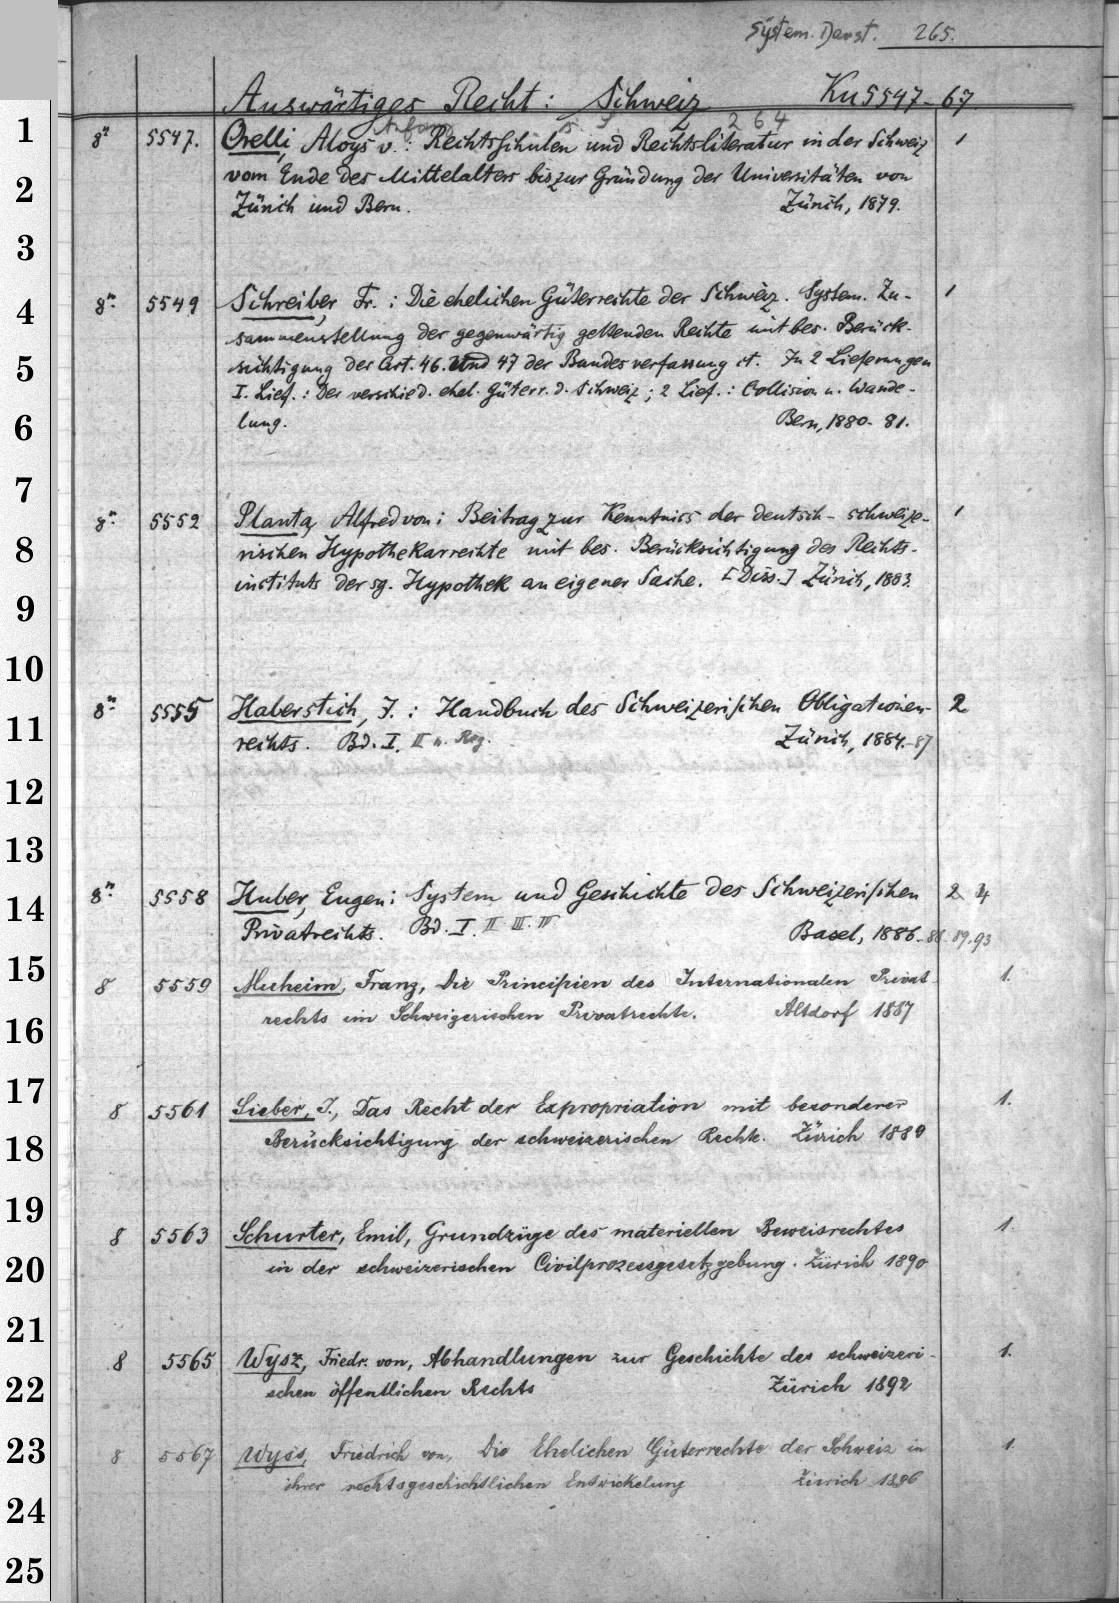 System. Darst. 265.
Auswärtiges Recht: Schweiz Ku5547-67
Anfang s. S. 264
8° 5547. Orelli, Aloys v.: Rechtsschulen und Rechtsliteratur in der Schweiz 1
vom Ende des Mittelalters bis zur Gründung der Universitäten von
Zürich und Bern. Zürich, 1879.
8° 5549 Schreiber, Fr.: Die ehelichen Güterrechte der Schweiz. System. Zu- 1
sammenstellung der gegenwärtig geltenden Rechte mit bes. Berück-
sichtigung der Art. 46. und 47 der Bundesverfassung et. In 2 Lieferungen
I. Lief.: Der verschied. ehel. Güterr. d. Schweiz; 2 Lief.: Collision u. Wande-
lung. Bern, 1880-81.
8° 5552 Planta, Alfred von: Beitrag zur Kenntniss der deutsch-schweize- 1
rischen Hypothekarrechte mit bes. Berücksichtigung des Rechts-
instituts der sg. Hypothek an eigener Sache. [Diss.] Zürich, 1883.
8° 5555 Haberstich, J.: Handbuch des Schweizerischen Obligationen- 2
rechts. Bd. I. II u. Reg. Zürich, 1884.-87
8° 5558 Huber, Eugen: System und Geschichte des Schweizerischen 2 4
Privatrechts. Bd. I. II III. IV Basel, 1886.-88.89.93
8 5559 Muheim, Franz, Die Principien des Internationalen Privat- 1.
rechts im Schweizerischen Privatrechte. Altdorf 1887
8 5561 Sieber, J., Das Recht der Expropriation mit besonderer 1.
Berücksichtigung der schweizerischen Rechte. Zürich 1889
8 5563 Schurter, Emil, Grundzüge des materiellen Beweisrechtes 1.
in der schweizerischen Civilprozessgesetzgebung. Zürich 1890
8 5565 Wysz, Friedr. von, Abhandlungen zur Geschichte des schweizeri- 1.
schen öffentlichen Rechts Zürich 1892
8 5567 Wyss, Friedrich von, Die Ehelichen Güterrechte der Schweiz in 1
ihrer rechtsgeschichtlichen Entwickelung Zürich 1896
1
2
3
4
5
6
7
8
9
10
11
12
13
14
15
16
17
18
19
20
21
22
23
24
25